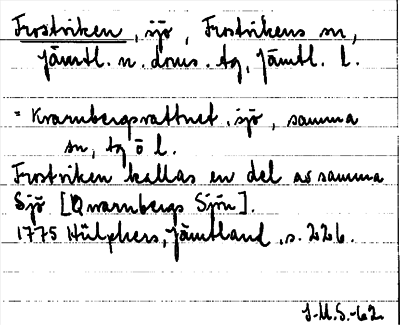 Frostviken, sjö, Frostvikens sn,
Jämtl. n. doms. tg, Jämtl. l.
= Kvarnbergsvattnet, sjö, samma
sn, tg o l.
Frostviken kallas en del av samma
Sjö [Qwarnbergs Sjön].
1775 Hülphers, Jämtland, s. 226.
J.M.S.-62